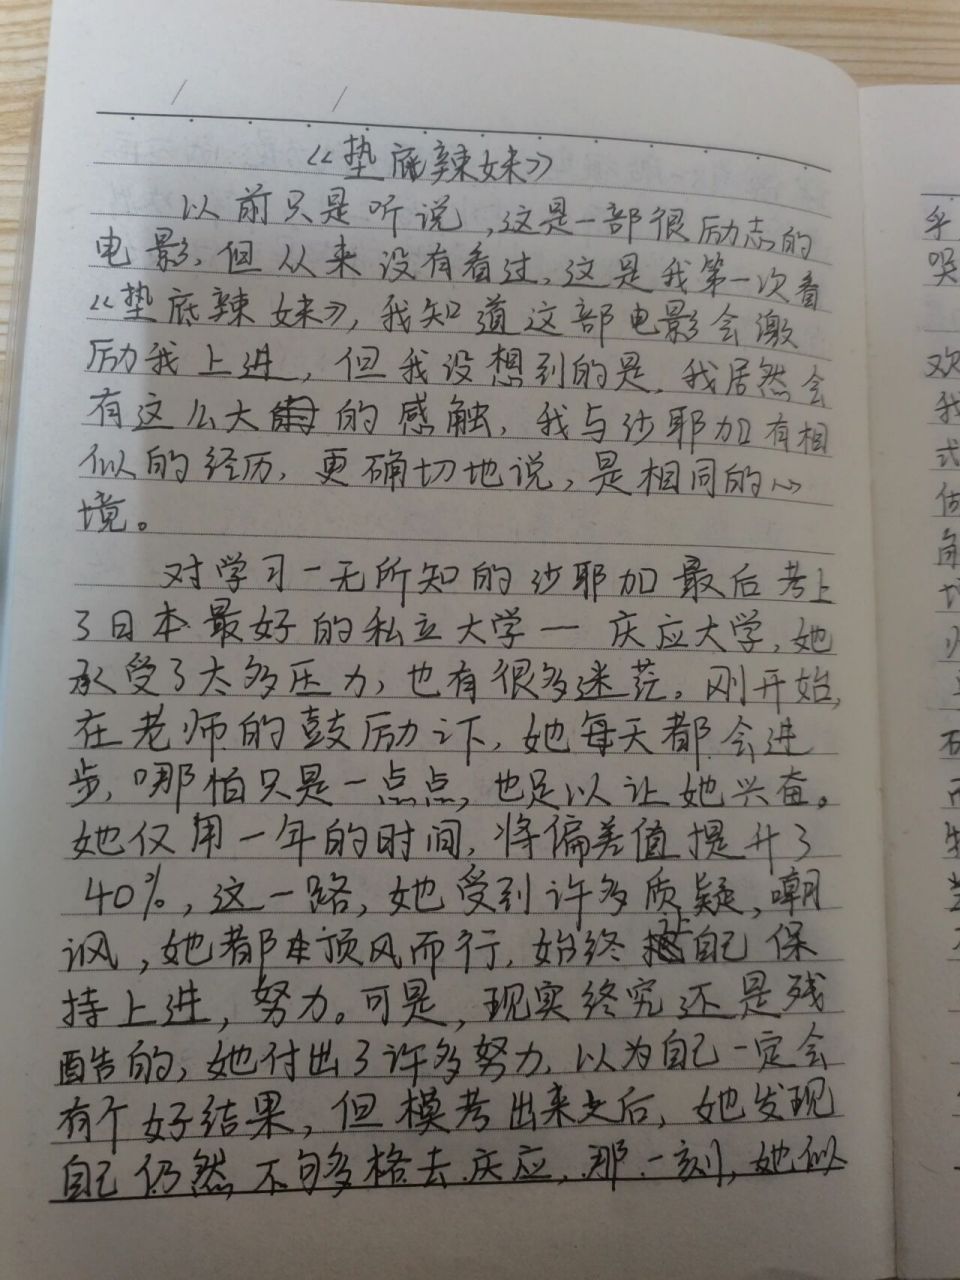 《垫底辣妹》
以前只是听说,这是一部很励志的
电影,但从来没有看过,这是我第一次看
《垫底辣妹》,我知道这部电影会激
励我上进,但我没想到的是,我居然会
有这么大的感触,我与沙耶加有相
似的经历,更确切地说,是相同的心
境。
对学习一无所知的沙耶加最后考上
了日本最好的私立大学一庆应大学,她
承受了太多压力,也有很多迷茫。刚开始,
在老师的鼓励之下,她每天都会进
步,哪怕只是一点点,也足以让她兴奋。
她仅用一年的时间,将偏差值提升了
40%,这一路,她受到许多质疑,嘲
讽,她都顶风而行,始终让自己保
持上进,努力。可是,现实终究还是残
酷的,她付出了许多努力,以为自己一定会
有个好结果,但模考出来之后,她发现
自己仍然不够格去庆应,那一刻,她似
乎
哭
欢
我
式